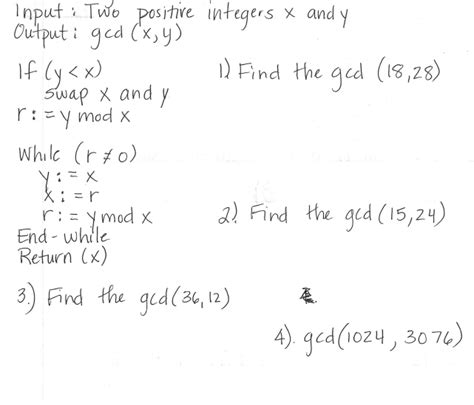 Input: Two positive integers x and y
Output: gcd (x,y)
If (y < x)
swap x and y
r: = y mod x
1) Find the gcd (18,28)
While (r ≠ 0)
y: = x
x: = r
r: = y mod x
End-while
Return (x)
2) Find the gcd (15,24)
3.) Find the gcd (36,12)
4). gcd(1024, 3076)